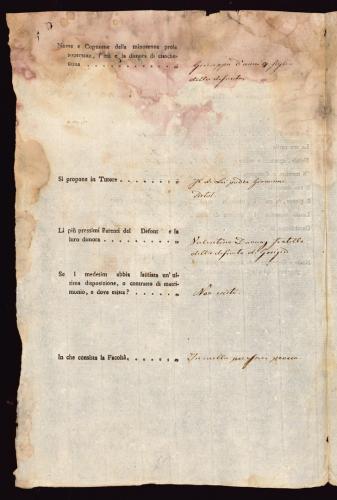 Nome e Cognome della minorenne prole
superstite, l'età e la dimora di ciasche-
duna . . . . . . . . . . . . „
d'anni 9 figlio
della defunta
Si propone in Tutore . . . . . . . „
il di Lui padre Giovanni
Li più prossimi Parenti del Defont e la
loro dimora . . . . . . . . . . „
Valentino fratello
della defunta di
Se l medesim abbia lasciata un' ul-
tima disposizione, o contratto di matri-
monio, e dove esista? . . . . . . . „
Non esiste
In che consista la Facoltà . . . . . . . „